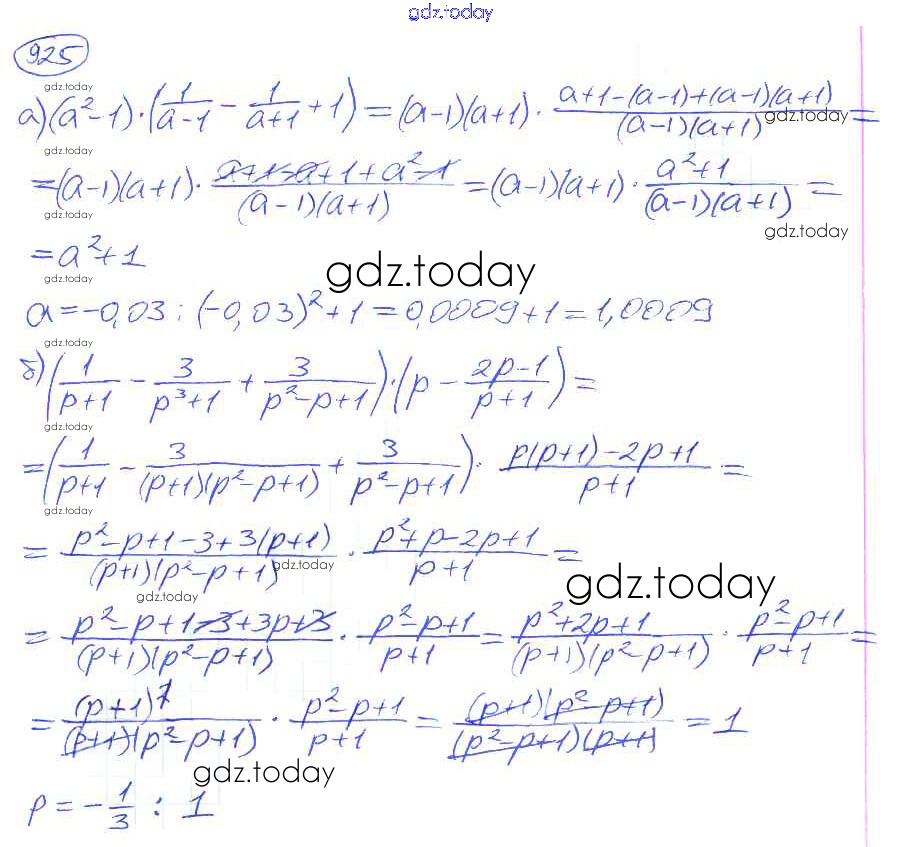 gdz.today
925
gdz.today
а) (a²-1)·(1/(a-1) - 1/(a+1) + 1) = (a-1)(a+1) · (a+1-(a-1)+(a-1)(a+1))/((a-1)(a+1)) =
gdz.today
gdz.today
gdz.today
= (a-1)(a+1) · (a+1-a+1+a²-1)/((a-1)(a+1)) = (a-1)(a+1) · (a²+1)/((a-1)(a+1)) =
gdz.today
gdz.today
= a²+1
gdz.today
gdz.today
a = -0,03 : (-0,03)² + 1 = 0,0009 + 1 = 1,0009
gdz.today
б) (1/(p+1) - 3/(p³+1) + 3/(p²-p+1)) · (p - (2p-1)/(p+1)) =
gdz.today
= (1/(p+1) - 3/((p+1)(p²-p+1)) + 3/(p²-p+1)) · (p(p+1)-2p+1)/(p+1) =
gdz.today
= (p²-p+1-3+3(p+1))/((p+1)(p²-p+1)) · (p²+p-2p+1)/(p+1) =
gdz.today
gdz.today
= (p²-p+1-3+3p+3)/((p+1)(p²-p+1)) · (p²-p+1)/(p+1) = (p²+2p+1)/((p+1)(p²-p+1)) · (p²-p+1)/(p+1) =
= (p+1)²/((p+1)(p²-p+1)) · (p²-p+1)/(p+1) = ((p+1)(p²-p+1))/((p²-p+1)(p+1)) = 1
gdz.today
p = -1/3 : 1